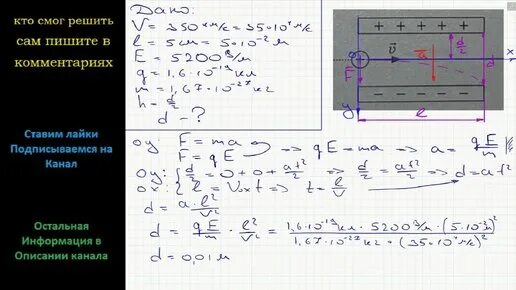 кто смог решить
сам пишите в
комментариях
Ставим лайки
Подписываемся на
Канал
Остальная
Информация в
Описании канала
Дано:
V = 350 км/с = 35·10⁴ м/с
l = 5 см = 5·10⁻² м
E = 5200 В/м
q = 1,6·10⁻¹⁹ Кл
m = 1,67·10⁻²⁷ кг
h = d/2
d - ?
+ + + + +
x
F υ a d/2 d
y
− − − − −
l
oy: F = ma
F = qE => qE = ma => a = qE/m
oy: { d/2 = 0 + 0 + at²/2 => d/2 = at²/2 => d = at²
ox: { l = V₀ₓt => t = l/V
d = a·l²/V²
d = qE/m · l²/V² = 1,6·10⁻¹⁹ Кл · 5200 В/м · (5·10⁻² м)² / 1,67·10⁻²⁷ кг · (35·10⁴ м/с)²
d = 0,01 м